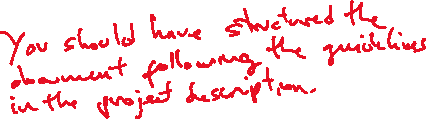 You should have structured the
document following the guidelines
in the project description.